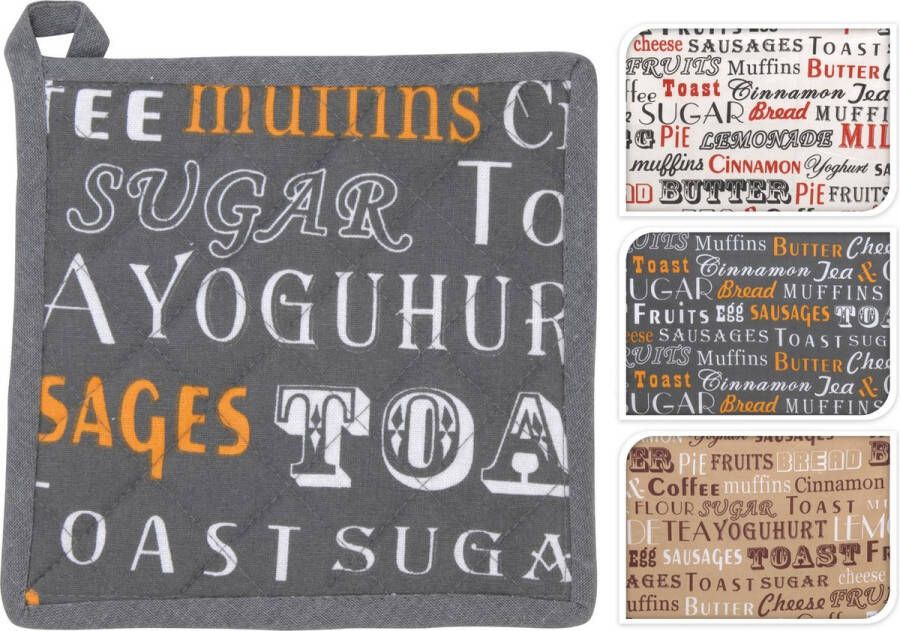 FEE muffins CI
SUGAR To
AYOGUHUR
SAGES TOA
OAST SUGA
FRUITS Egg
cheese SAUSAGES TOAST
FRUITS Muffins BUTTER Che
ffee Toast Cinnamon Tea
SUGAR Bread MUFF
G PiE LEMONADE MIL
muffins CINNAMON Yoghurt SA
D BUTTER PiE FRUITS
UITS Muffins BUTTER Chee
Toast Cinnamon Tea &
UGAR Bread MUFFINS
FRUITS Egg SAUSAGES TOA
eese SAUSAGES TOAST SUG
UITS Muffins BUTTER Chee
Toast Cinnamon Tea &
UGAR Bread MUFFINS
Yoghurt SAUSAGES
ER PiE FRUITS BREAD B
& COFFEE muffins Cinnamon
FLOUR SUGAR TOAST MU
DE TEA YOGUHURT LEMO
Egg SAUSAGES TOAST FR
AGES TOAST SUGAR cheese
uffins BUTTER Cheese FRU